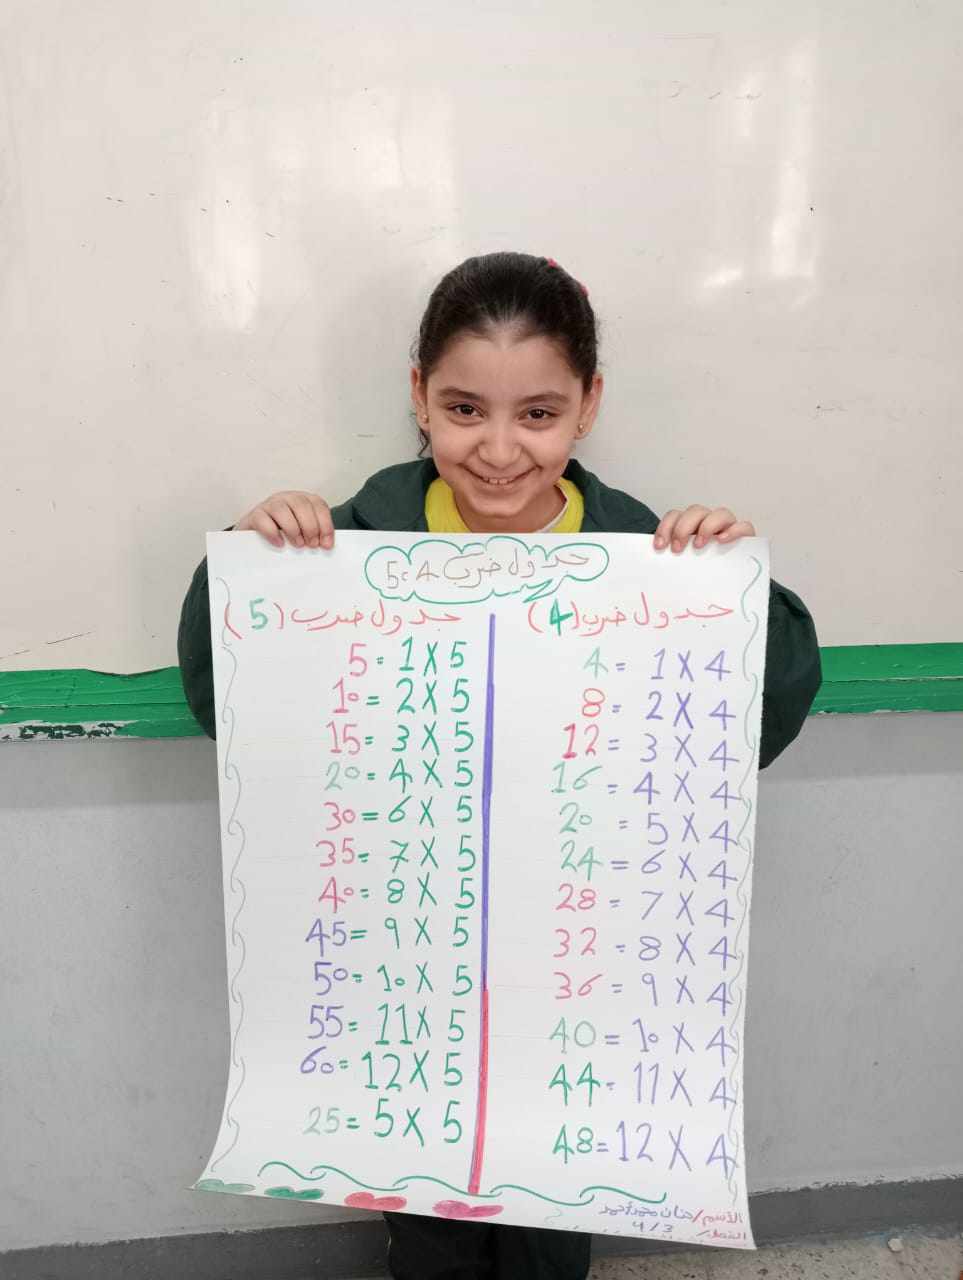 جدول ضرب 4،5
جدول ضرب (4)
4 × 1 = 4
4 × 2 = 8
4 × 3 = 12
4 × 4 = 16
4 × 5 = 20
4 × 6 = 24
4 × 7 = 28
4 × 8 = 32
4 × 9 = 36
4 × 10 = 40
4 × 11 = 44
4 × 12 = 48
جدول ضرب (5)
5 × 1 = 5
5 × 2 = 10
5 × 3 = 15
5 × 4 = 20
5 × 6 = 30
5 × 7 = 35
5 × 8 = 40
5 × 9 = 45
5 × 10 = 50
5 × 11 = 55
5 × 12 = 60
5 × 5 = 25
الأسم/حنان محمد أحمد
الفصل/ 3/4